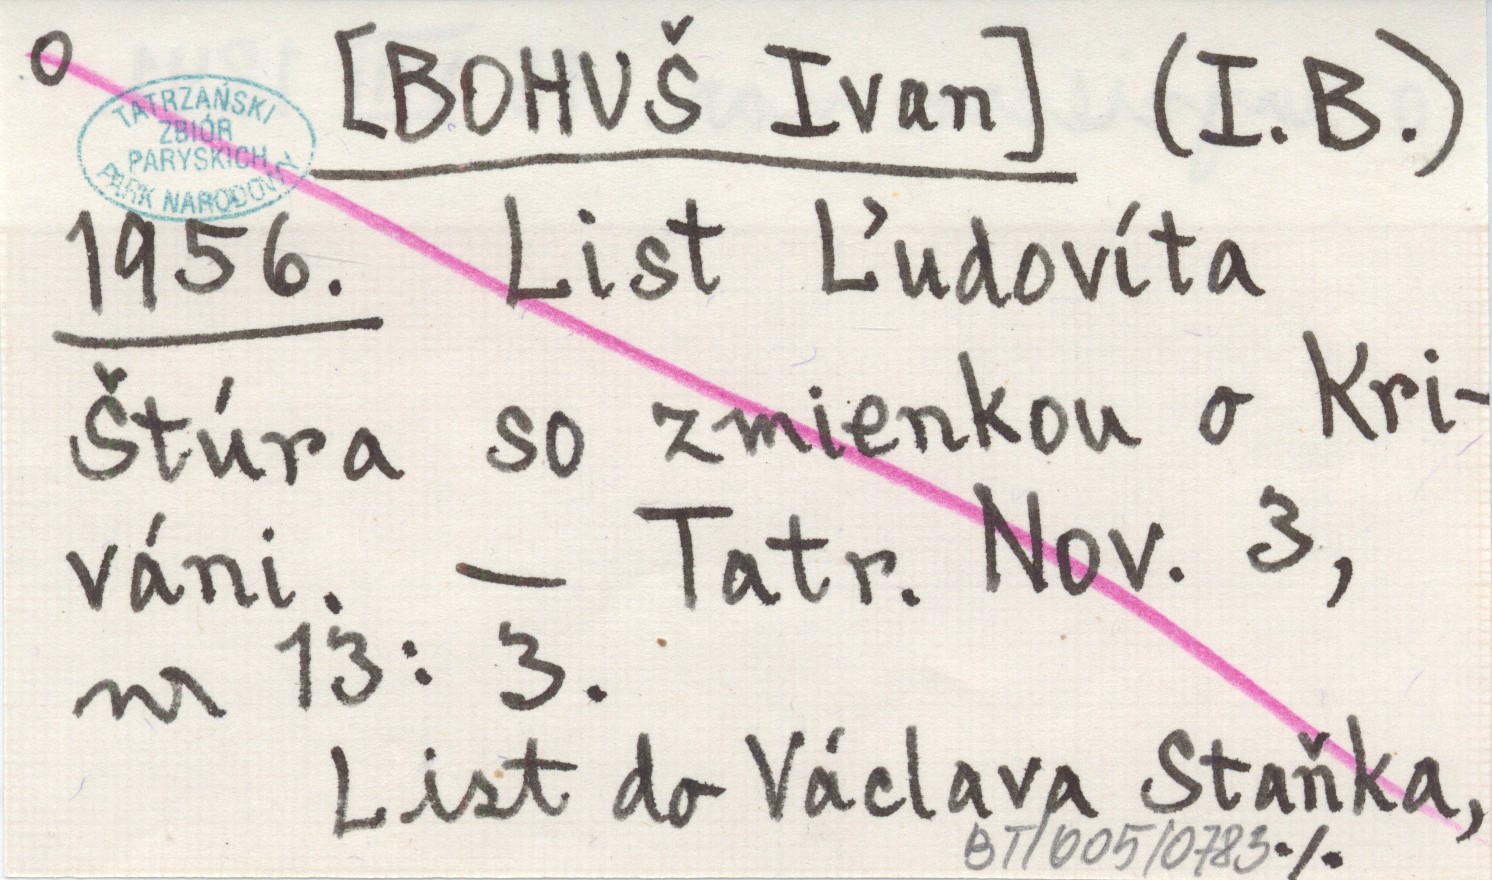 o [BOHUŠ Ivan] (I.B.)
TATRZAŃSKI
ZBIÓR
PARYSKICH
PARK NARODOWY
1956. List Ľudovíta
Štúra so zmienkou o Kri-
váni. — Tatr. Nov. 3,
nr 13: 3.
List do Václava Staňka,
BT/005/0783 ./.